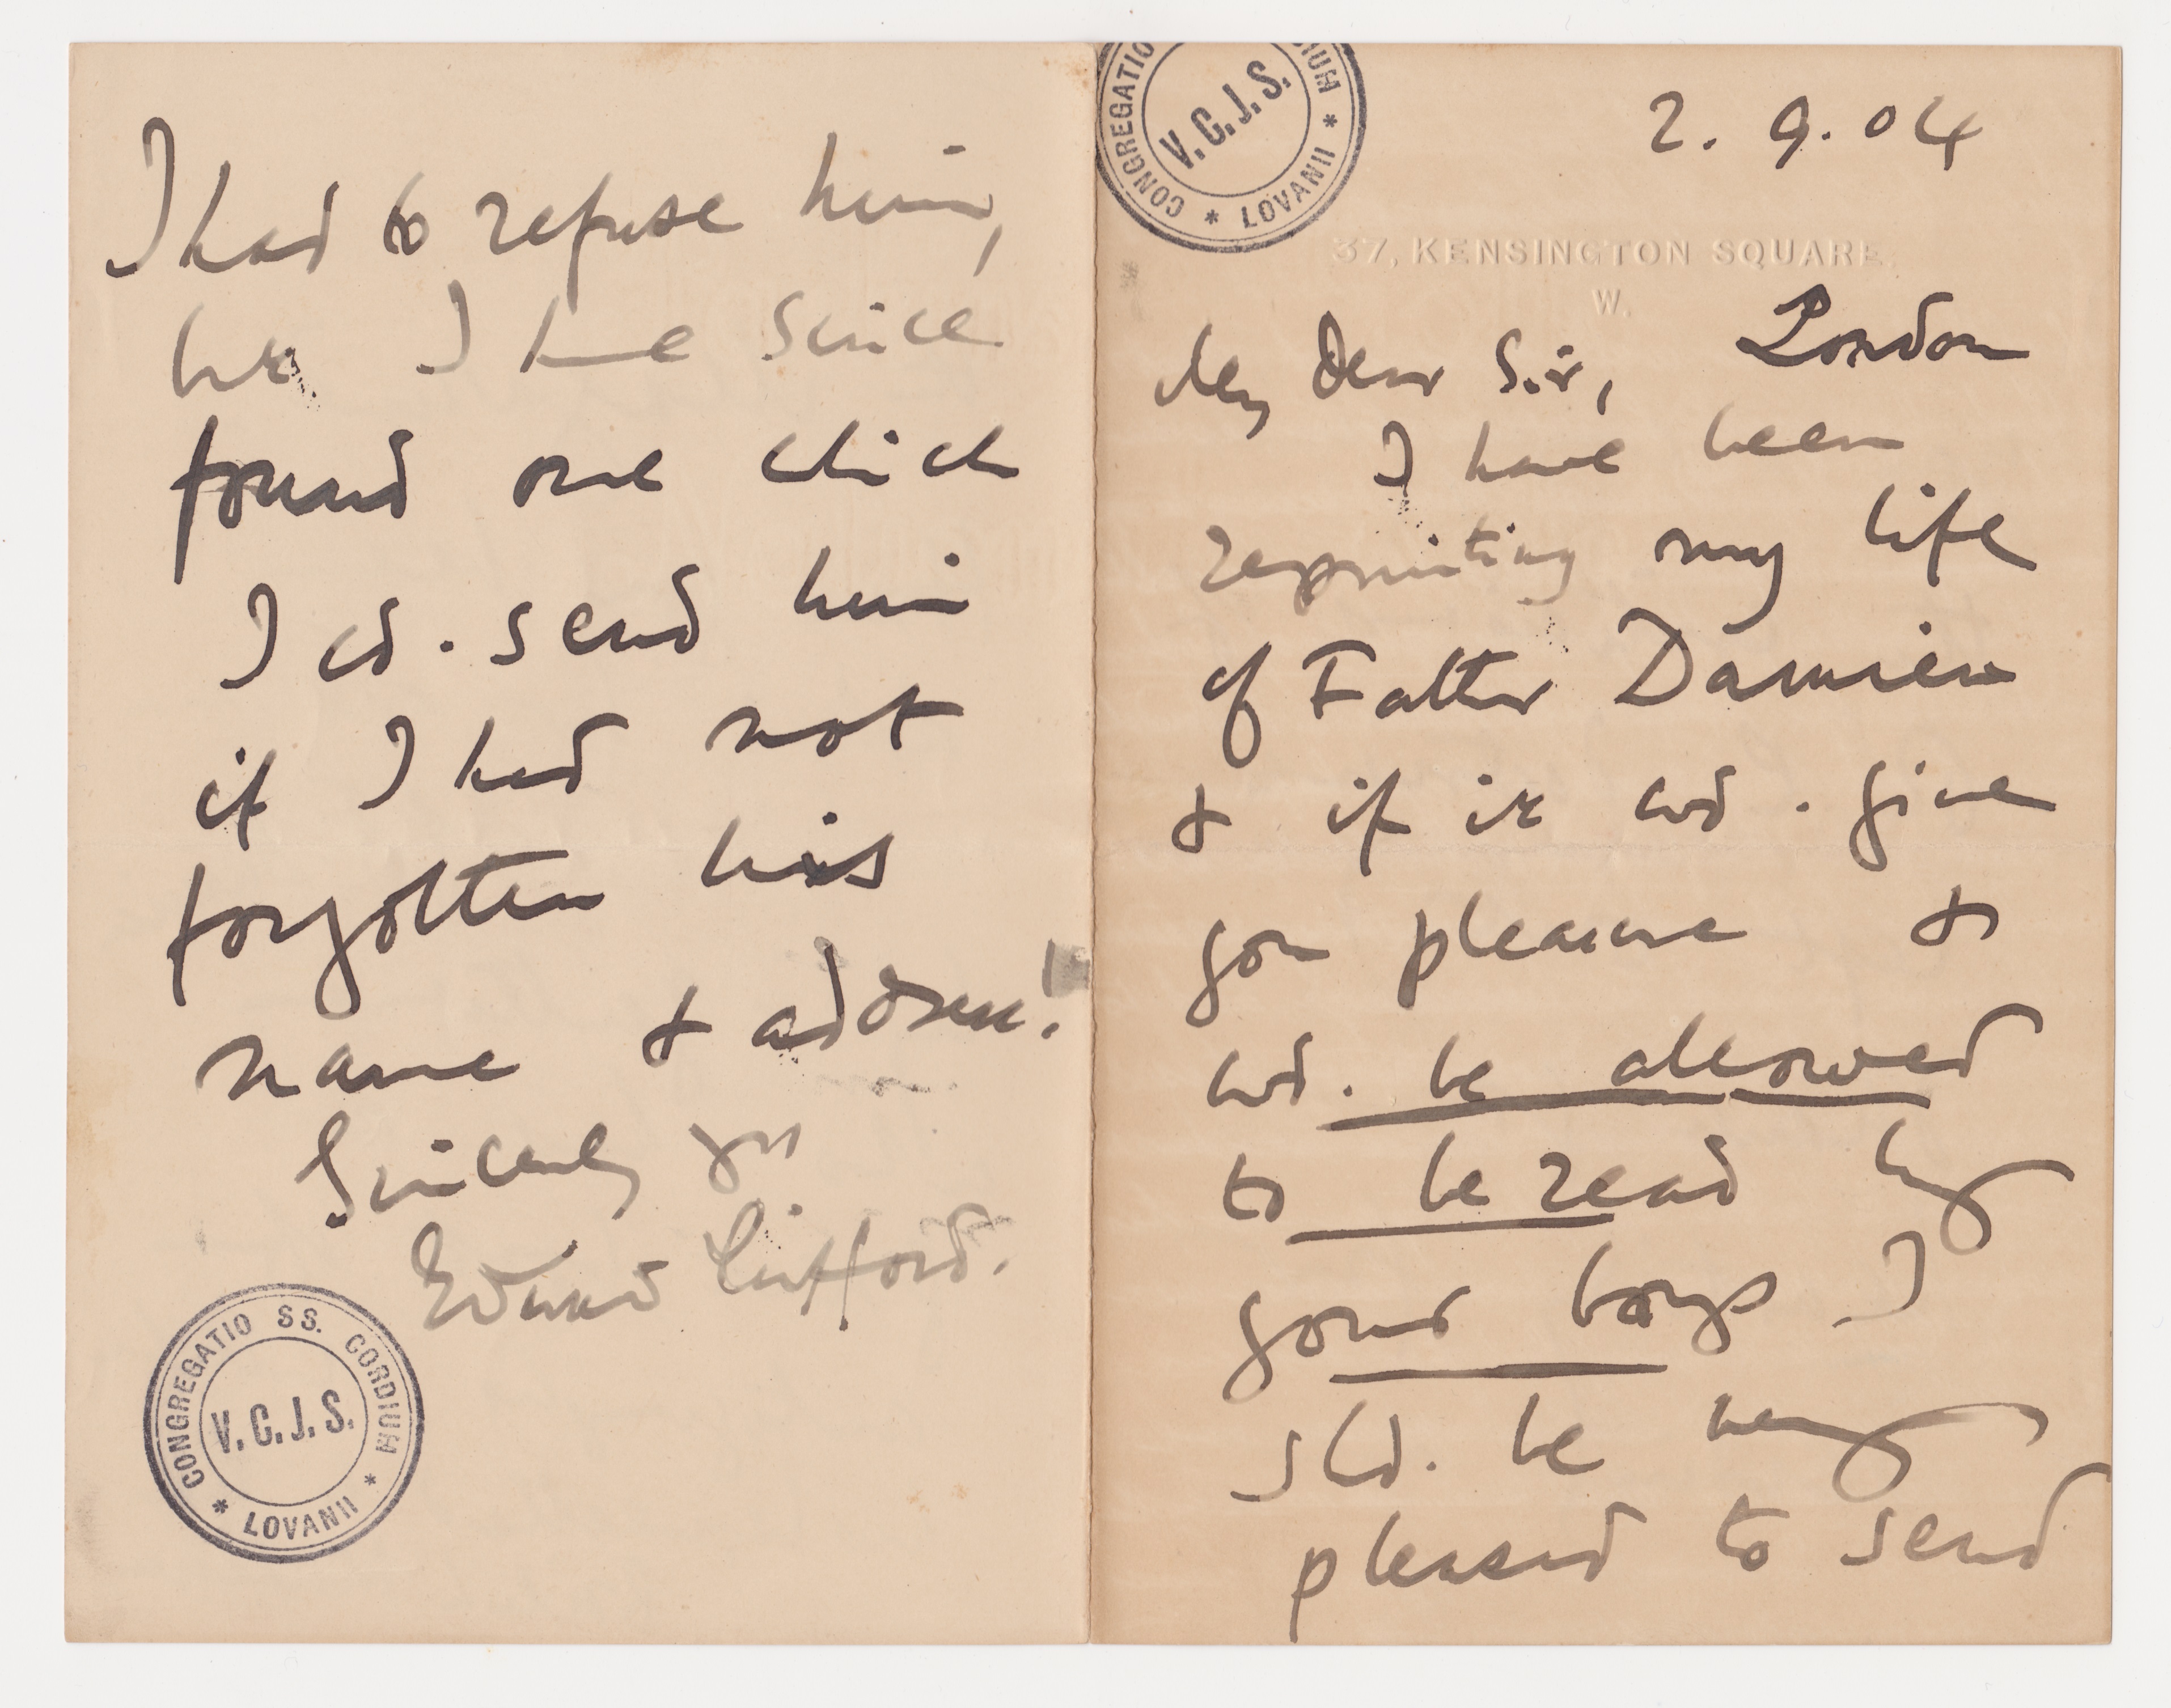 CONGREGATIO
V. C. J. S.
* LOVANII *
2. 9. 04
37, KENSINGTON SQUARE.
W.
London
My Dear Sir,
I have been
reprinting my life
of Father Damien
& if it wd. give
you pleasure &
wd. be allowed
to be read by
your boys I
shd. be very
pleased to send
I had to refuse him,
but I have since
found one which
I cd. send him
if I had not
forgotten his
name & address!
Sincerely yrs
Edward Clifford.
CONGREGATIO SS. CORDIUM
V. C. J. S.
* LOVANII *